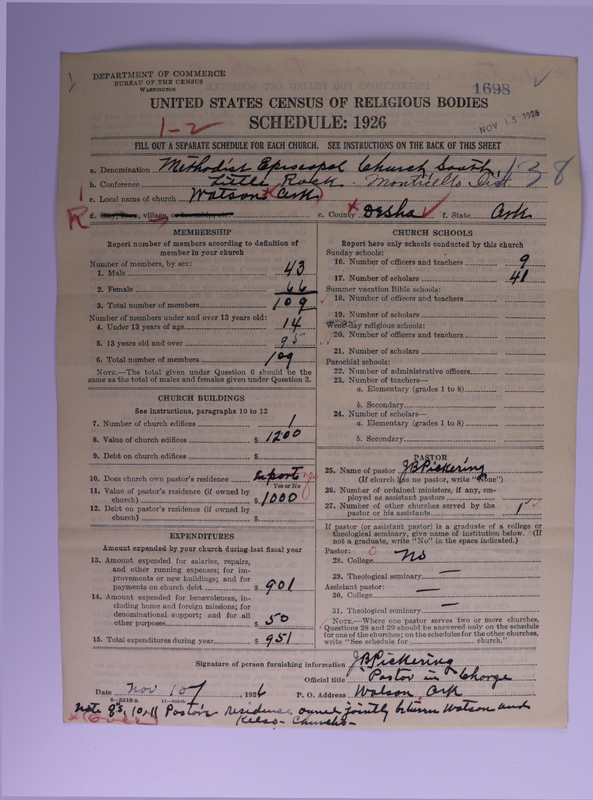 DEPARTMENT OF COMMERCE
BUREAU OF THE CENSUS
WASHINGTON
1698
UNITED STATES CENSUS OF RELIGIOUS BODIES
SCHEDULE: 1926
NOV 15 1926
1-2
FILL OUT A SEPARATE SCHEDULE FOR EACH CHURCH. SEE INSTRUCTIONS ON THE BACK OF THIS SHEET
a. Denomination Methodist Episcopal Church South 138
b. Conference Little Rock - Monticello Dist.
c. Local name of church Watson Ark
R
d. City, Town, village, or e. County Desha f. State Ark
MEMBERSHIP
Report number of members according to definition of member in your church
Number of members, by sex:
1. Male 43
2. Female 66
3. Total number of members 109
Number of members under and over 13 years old:
4. Under 13 years of age 14
5. 13 years old and over 95
6. Total number of members 109
NOTE.—The total given under Question 6 should be the
same as the total of males and females given under Question 3.
CHURCH BUILDINGS
See instructions, paragraphs 10 to 12
7. Number of church edifices 1
8. Value of church edifices $ 1200
9. Debt on church edifices $
10. Does church own pastor's residence
Yes or No
11. Value of pastor's residence (if owned by
church) $ 1000
12. Debt on pastor's residence (if owned by
church) $
EXPENDITURES
Amount expended by your church during last fiscal year
13. Amount expended for salaries, repairs,
and other running expenses; for im-
provements or new buildings; and for
payments on church debt $ 901
14. Amount expended for benevolences, in-
cluding home and foreign missions; for
denominational support; and for all
other purposes $ 50
15. Total expenditures during year $ 951
CHURCH SCHOOLS
Report here only schools conducted by this church
Sunday schools:
16. Number of officers and teachers 9
17. Number of scholars 41
Summer vacation Bible schools:
18. Number of officers and teachers
19. Number of scholars
Week-day religious schools:
20. Number of officers and teachers
21. Number of scholars
Parochial schools:
22. Number of administrative officers
23. Number of teachers—
a. Elementary (grades 1 to 8)
b. Secondary
24. Number of scholars—
a. Elementary (grades 1 to 8)
b. Secondary
PASTOR
25. Name of pastor JB Pickering
(If church has no pastor, write "None")
26. Number of ordained ministers, if any, em-
ployed as assistant pastors
27. Number of other churches served by the
pastor or his assistants 1
If pastor (or assistant pastor) is a graduate of a college or
theological seminary, give name of institution below. (If
not a graduate, write "No" in the space indicated.)
Pastor:
28. College No
29. Theological seminary —
Assistant pastor:
30. College —
31. Theological seminary —
NOTE.—Where one pastor serves two or more churches,
Questions 28 and 29 should be answered only on the schedule
for one of the churches; on the schedules for the other churches,
write "See schedule for church."
Signature of person furnishing information JB Pickering
Official title Pastor in Charge
Date Nov 10, 1926 P. O. Address Watson, Ark
note 10, 11 Pastor's residence owned jointly between Watson and
Kelso- Churches-